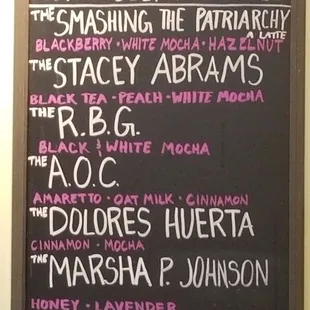 THE SMASHING THE PATRIARCHY
A LATTE
BLACKBERRY · WHITE MOCHA · HAZELNUT
THE STACEY ABRAMS
BLACK TEA · PEACH · WHITE MOCHA
THE R.B.G.
BLACK & WHITE MOCHA
THE A.O.C.
AMARETTO · OAT MILK · CINNAMON
THE DOLORES HUERTA
CINNAMON · MOCHA
THE MARSHA P. JOHNSON
HONEY · LAVENDER